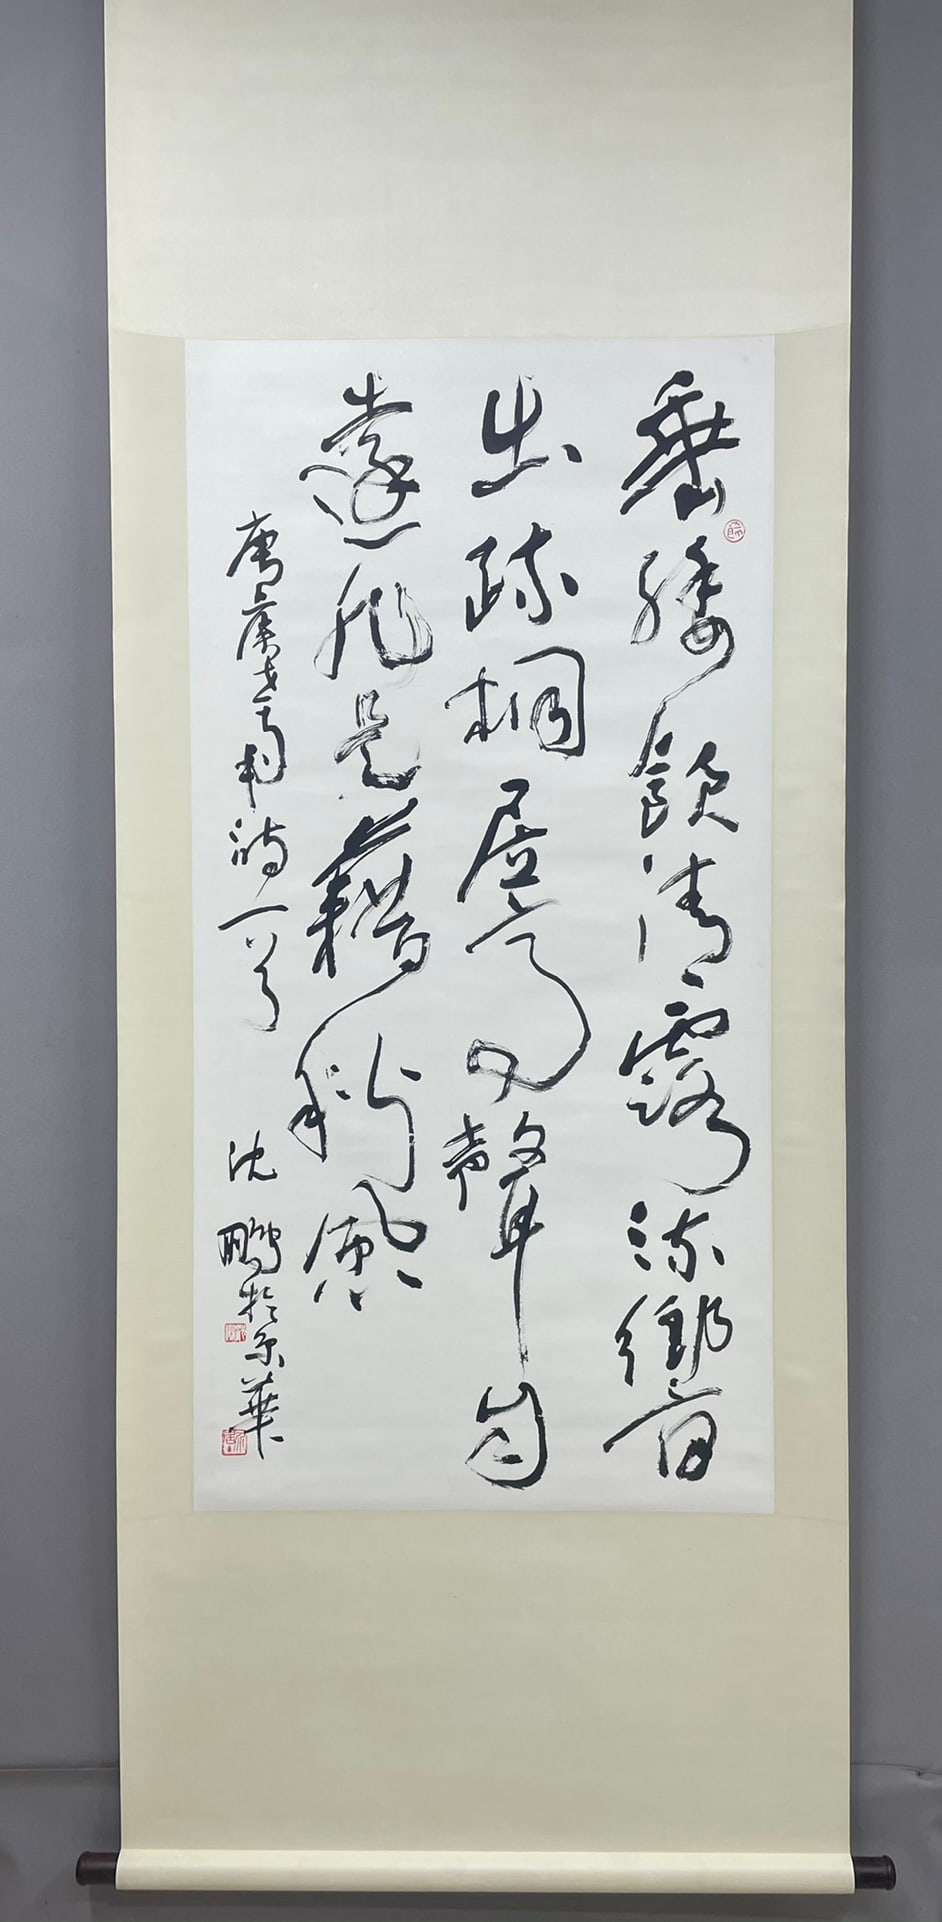 垂緌飲清露流響
出疏桐居高聲自
遠非是藉秋風
唐虞世南詩一首
沈鵬於京華